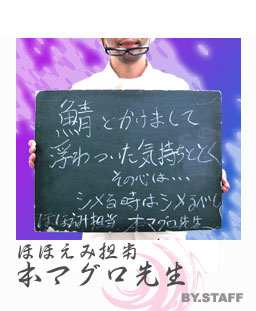 鯖とかけまして
浮わついた気持ちととく
その心は…
シメる時はシメるべし
ほほえみ担当 本マグロ先生
ほほえみ担当
本マグロ先生
BY.STAFF